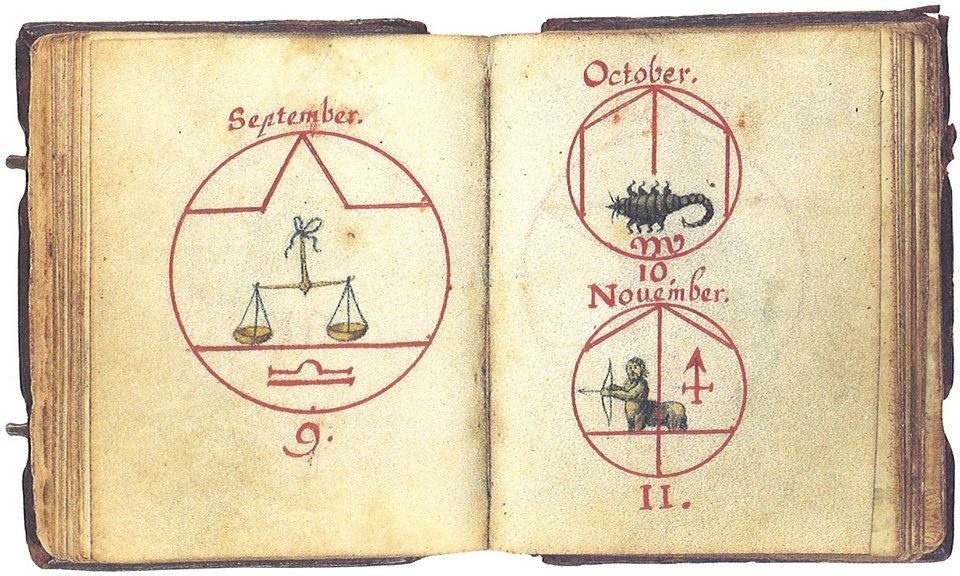 September.
♎
9.
October.
♏
10.
Nouember.
♐
11.